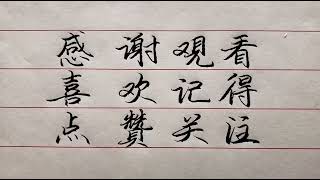 感谢观看
喜欢记得
点贊关注